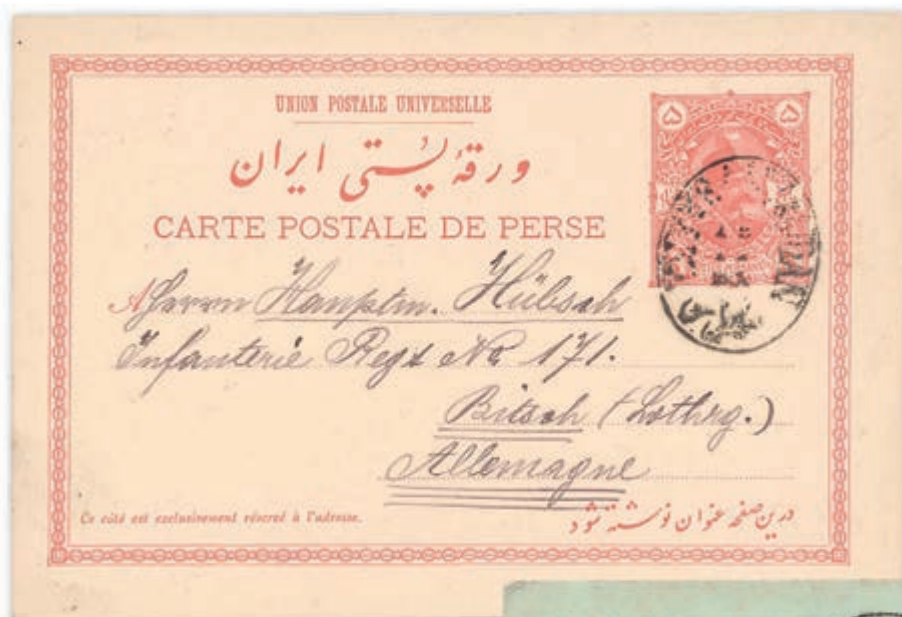 UNION POSTALE UNIVERSELLE
ورقهٔ پستی ایران
CARTE POSTALE DE PERSE
۵ ۵
A Herrn Hauptm. Hübsch
Infanterie Regt No 171.
Bitsch (Lothrg.)
Allemagne
Ce côté est exclusivement réservé à l'adresse.
درین صفحه عنوان نوشته شود